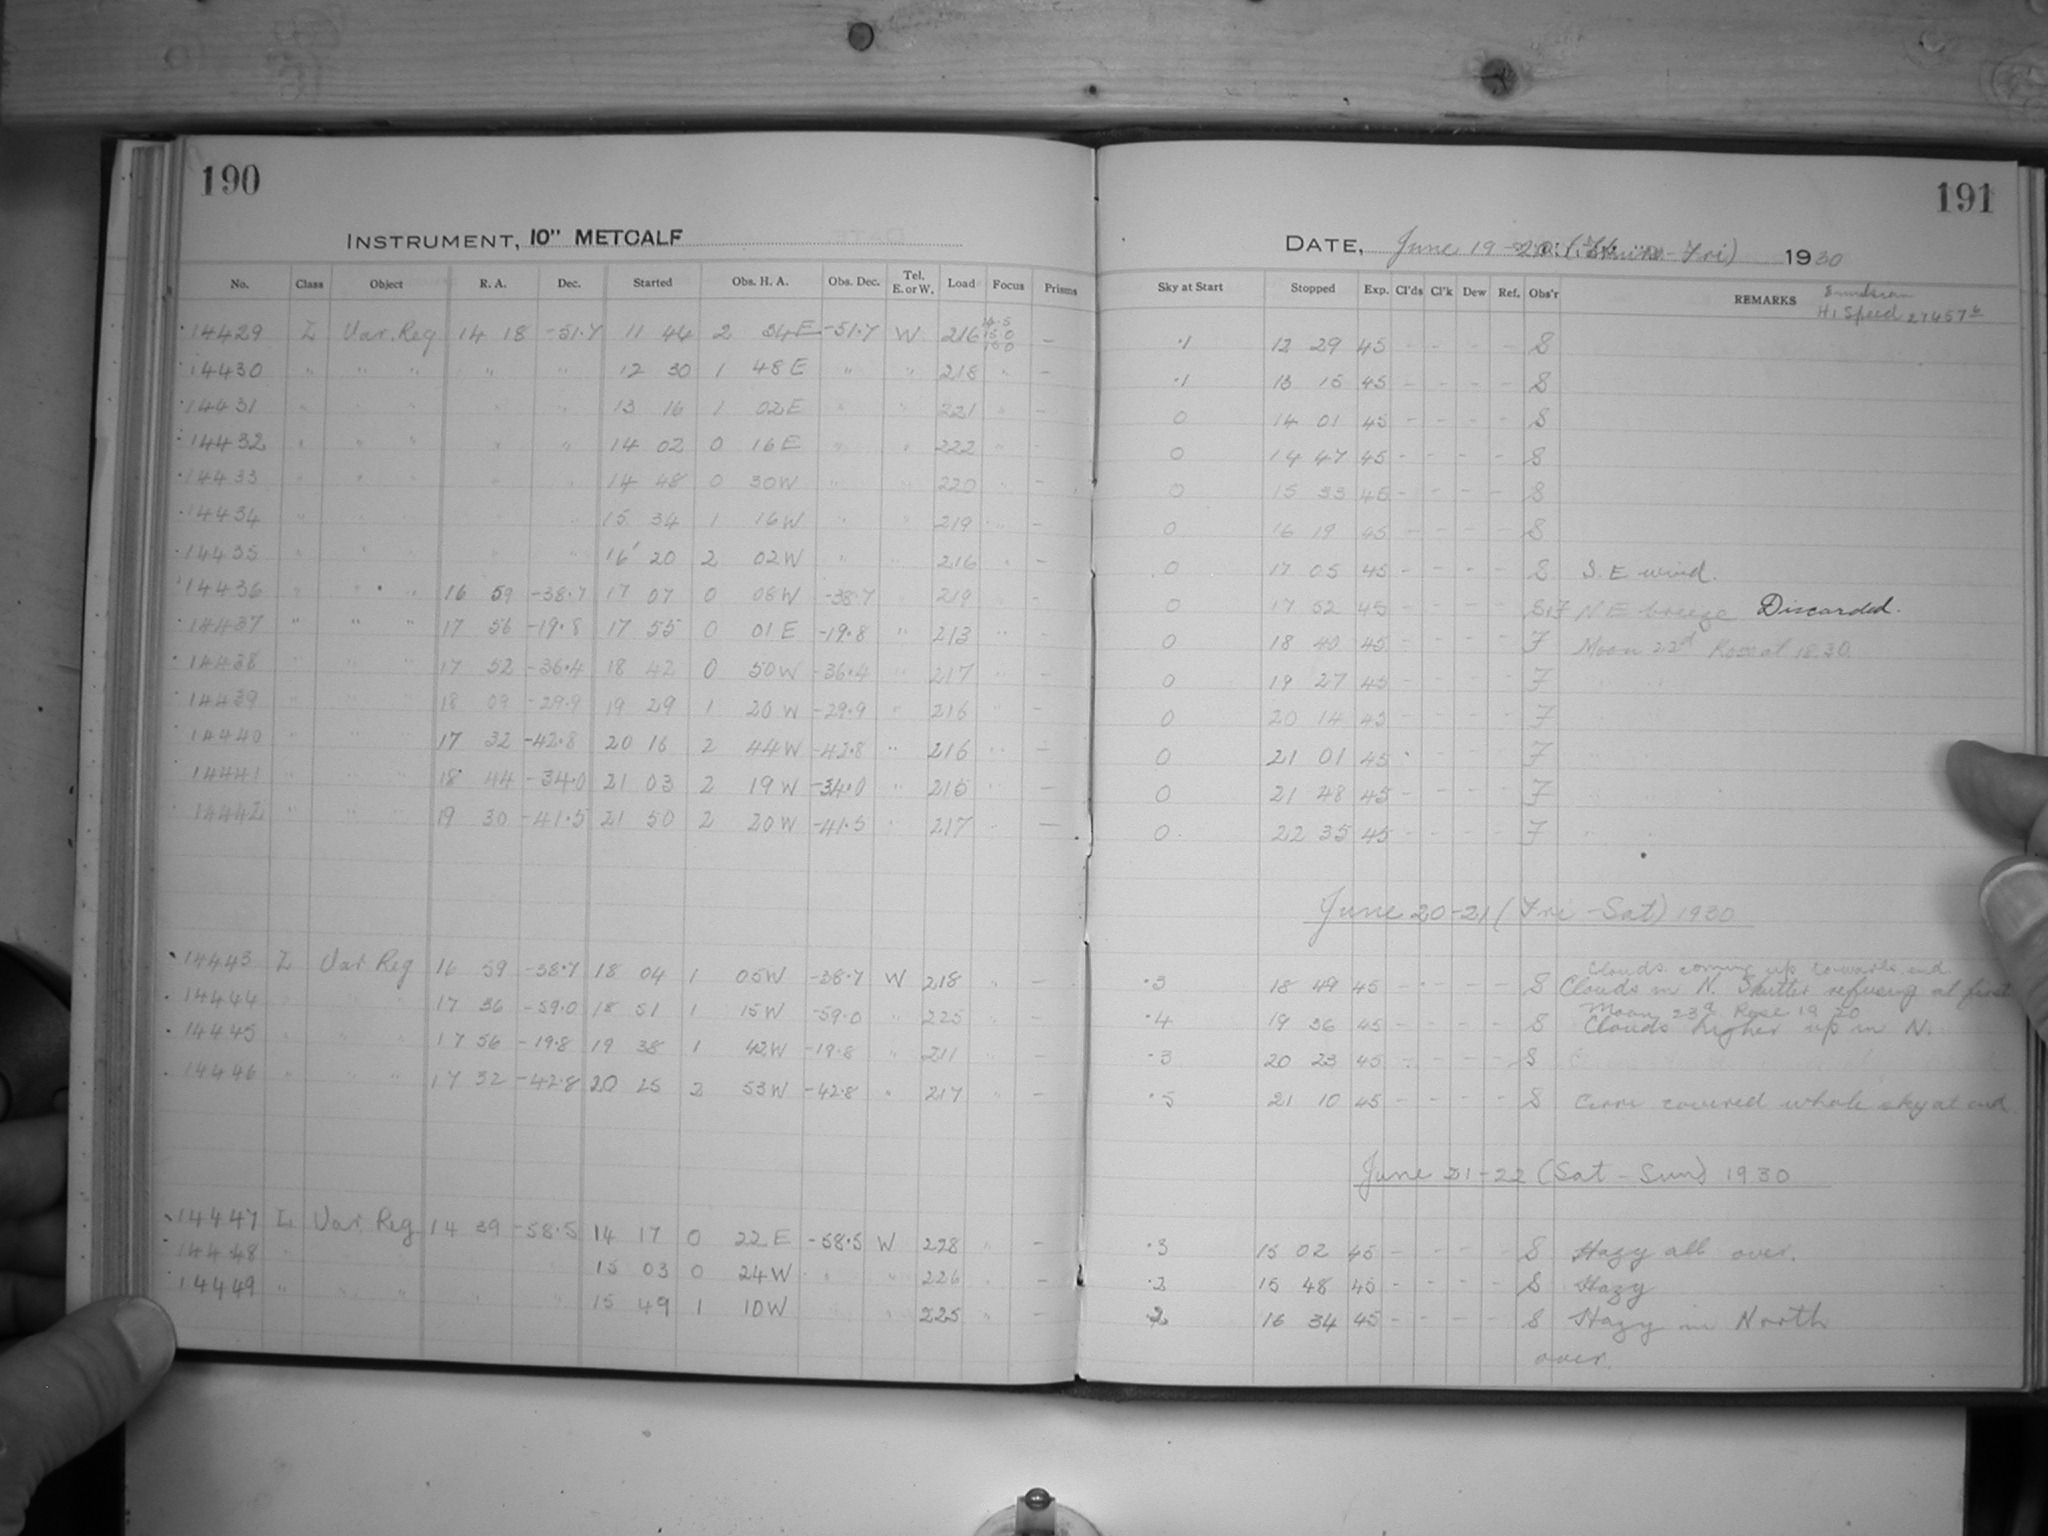 190
INSTRUMENT, 10" METCALF
No. Class Object R. A. Dec. Started Obs. H. A. Obs. Dec. Tel. E. or W. Load Focus Prisms
14429 L Var. Reg 14 18 -51.7 11 44 2 34E -51.7 W 216 –
14430 " " " " " 12 30 1 48E " " 218 " –
14431 " " " " 13 16 1 02E " " 221 " –
14432 " " " " " 14 02 0 16E " " 222 " –
14433 " " " " 14 48 0 30W " " 220 " –
14434 " " " 15 34 1 16W " " 219 " –
14435 " " " " " 16 20 2 02W " " 216 " –
14436 " " " 16 59 -38.7 17 07 0 08W -38.7 " 219 " –
14437 " " " 17 56 -19.8 17 55 0 01E -19.8 " 213 " –
14438 " " " 17 52 -36.4 18 42 0 50W -36.4 " 217 " –
14439 " " " 18 09 -29.9 19 29 1 20W -29.9 " 216 " –
14440 " " " 17 32 -42.8 20 16 2 44W -42.8 " 216 " –
14441 " " " 18 44 -34.0 21 03 2 19W -34.0 " 215 " –
14442 " " " 19 30 -41.5 21 50 2 20W -41.5 " 217 " –
14443 L Var Reg 16 59 -38.7 18 04 1 05W -38.7 W 218 " –
14444 " " " 17 36 -59.0 18 51 1 15W -59.0 " 225 " –
14445 " " " 17 56 -19.8 19 38 1 42W -19.8 " 211 " –
14446 " " " 17 32 -42.8 20 25 2 53W -42.8 " 217 " –
14447 L Var Reg 14 39 -58.5 14 17 0 22E -58.5 W 228 " –
14448 " 15 03 0 24W " " 226 " –
14449 " " " " " 15 49 1 10W " 225 " –
191
DATE, June 19-20 Fri) 1930
Sky at Start Stopped Exp. Cl'ds Cl'k Dew Ref. Obs'r REMARKS
Hi Speed
.1 12 29 45 – – – – S
.1 13 15 45 – – – – S
0 14 01 45 – – – – S
0 14 47 45 – – – – S
0 15 33 45 – – – – S
0 16 19 45 – – – – S
0 17 05 45 – – – – S S. E wind.
0 17 52 45 – – – – N E breeze Discarded.
0 18 40 45 – – – – F Moon 22d Rose at 18.30.
0 19 27 45 – – – – F
0 20 14 45 – – – – F
0 21 01 45 – – – – F
0 21 48 45 – – – – F
0 22 35 45 – – – – F
June 20-21 (Fri-Sat) 1930
Clouds coming up towards end.
.3 18 49 45 – – – – S Clouds in N. Shutter refusing at first
Moon 23d Rose 19 20
.4 19 36 45 – – – – S Clouds higher up in N.
.3 20 23 45 – – – – S
.5 21 10 45 – – – – S Cirri covered whole sky at end
June 21-22 (Sat-Sun) 1930
.3 15 02 45 – – – – S Hazy all over.
.2 15 48 45 – – – – S Hazy
.2 16 34 45 – – – – S Hazy in North
over.